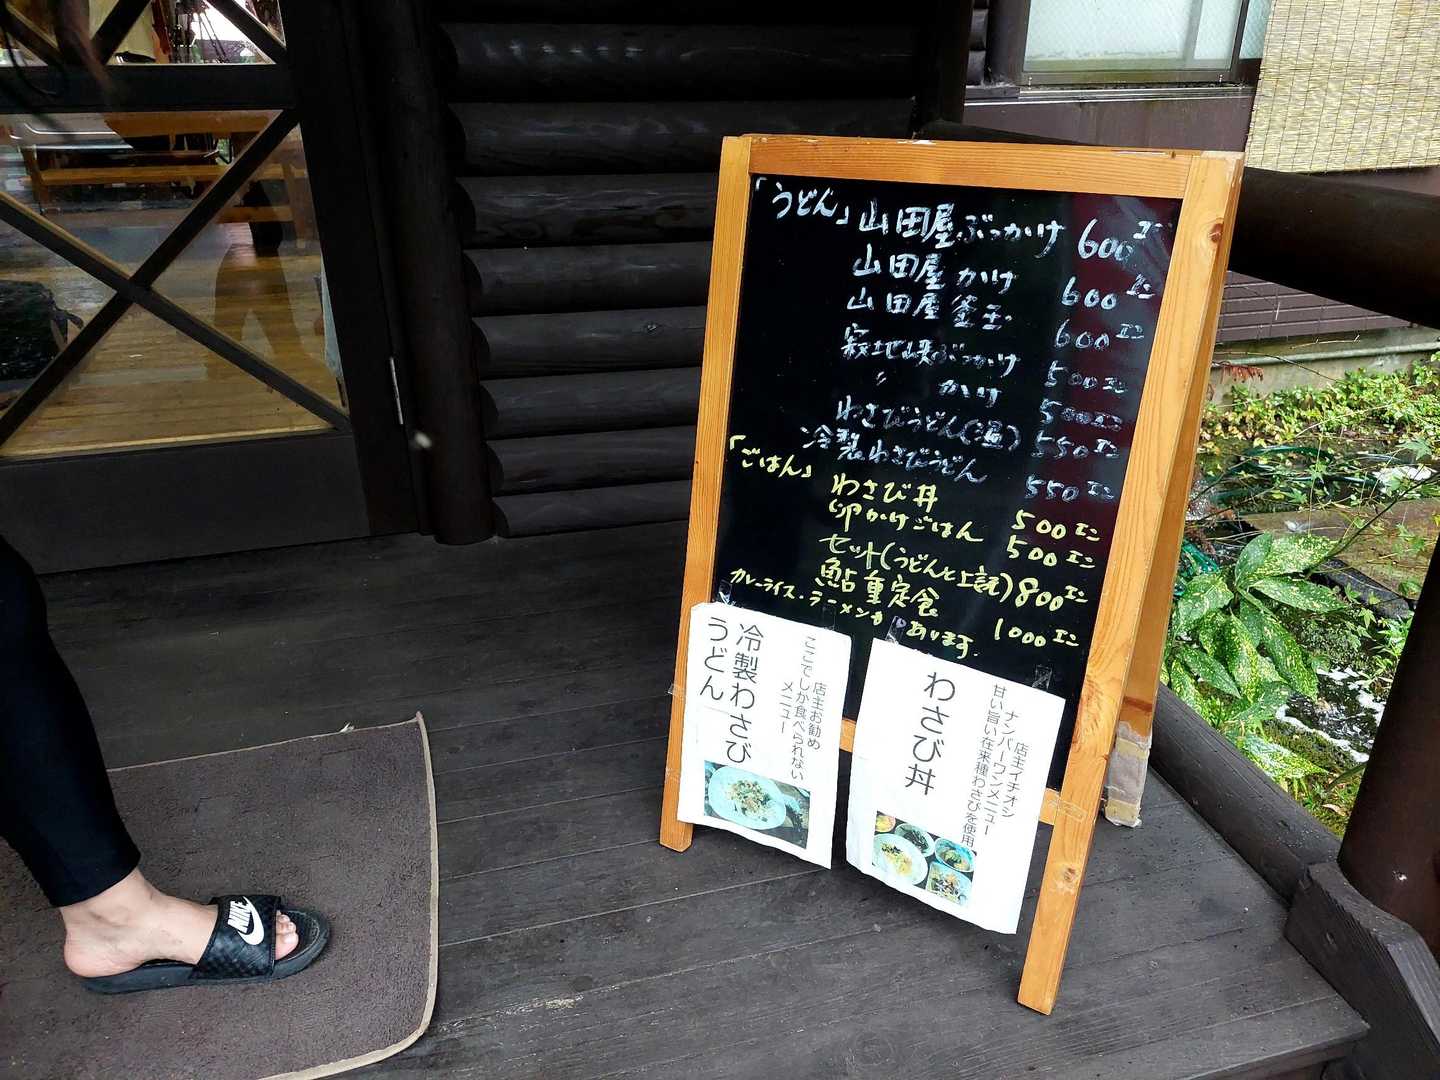 「うどん」山田屋ぶっかけ 600エン
山田屋かけ 600エン
山田屋釜玉 600エン
ぶっかけ 500エン
〃 かけ 500エン
わさびうどん(温) 550エン
冷製わさびうどん 550エン
「ごはん」
わさび丼 500エン
卵かけごはん 500エン
セット(うどんと上記) 800エン
鮎重定食 1000エン
カレーライス・ラーメンがあります。
ここでしか食べられない
店主お勧め
メニュー
冷製わさび
うどん
店主イチオシ
ナンバーワンメニュー
甘い旨い在来種わさびを使用
わさび丼
NIKE